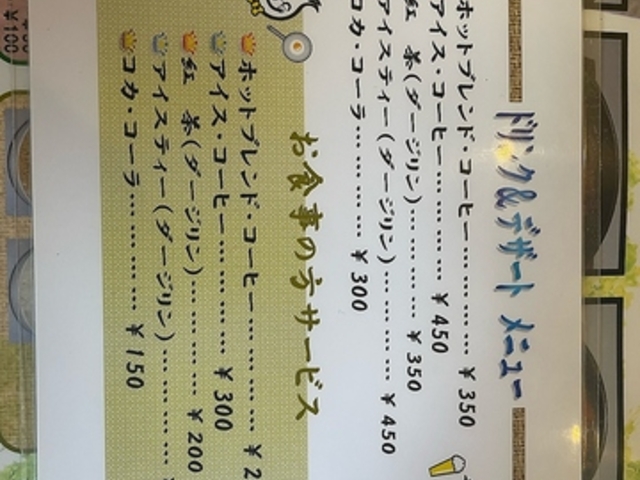 ドリンク&デザート メニュー
ホットブレンド・コーヒー………… ¥350
アイス・コーヒー………… ¥450
紅 茶(ダージリン)………… ¥350
アイスティー(ダージリン)………… ¥450
コカ・コーラ………… ¥300
お食事の方サービス
ホットブレンド・コーヒー………… ¥2
アイス・コーヒー………… ¥300
紅 茶(ダージリン)………… ¥200
アイスティー(ダージリン)…………
コカ・コーラ………… ¥150
¥100